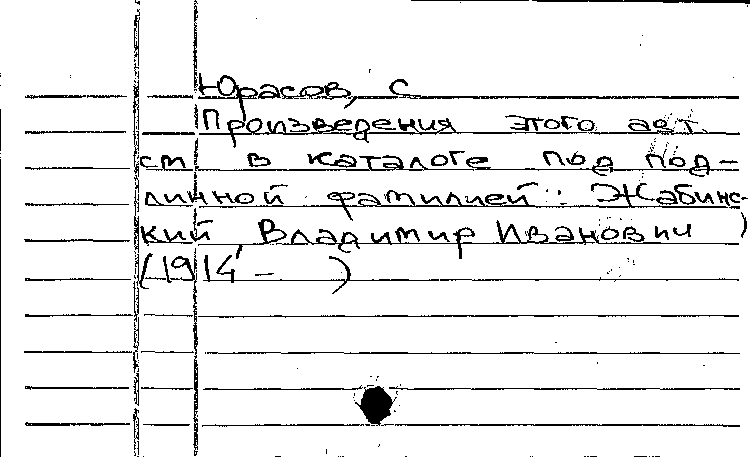 Юрасов, С
Произведения этого авт.
см в каталоге под под-
линной фамилией: Жабинс-
кий, Владимир Иванович
(1914 - )